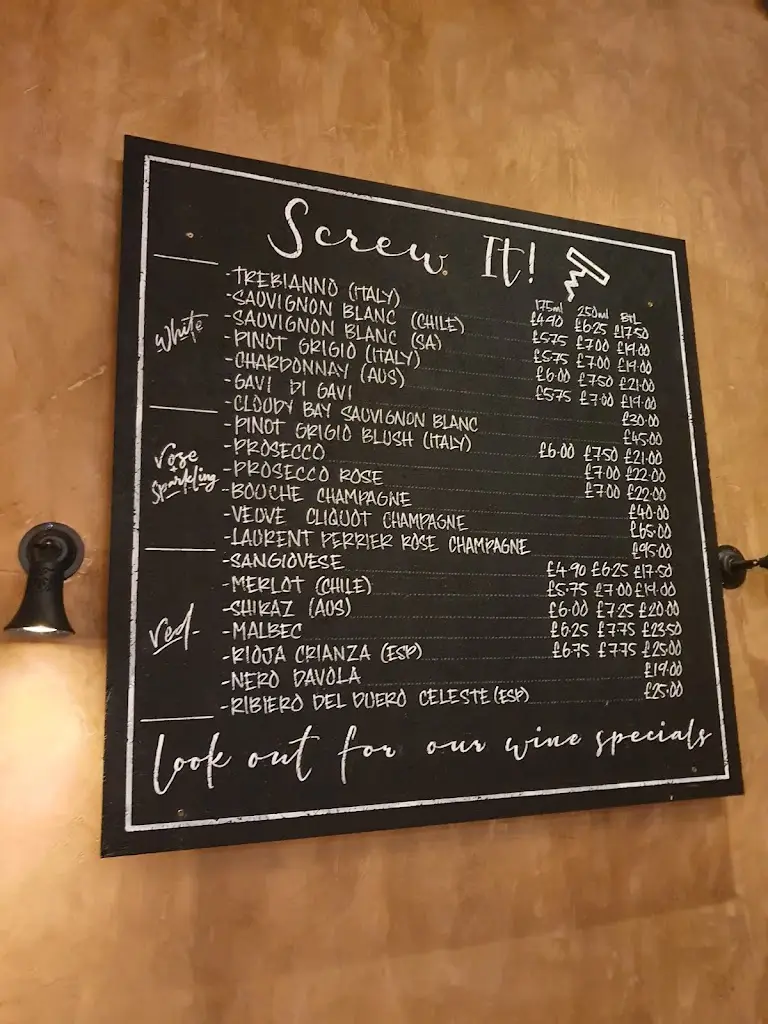 Screw It!
175ml 250ml BTL
White
-TREBIANNO (ITALY) £4.90 £6.25 £17.50
-SAUVIGNON BLANC (CHILE) £5.75 £7.00 £19.00
-SAUVIGNON BLANC (SA) £5.75 £7.00 £19.00
-PINOT GRIGIO (ITALY) £6.00 £7.50 £21.00
-CHARDONNAY (AUS) £5.75 £7.00 £19.00
-GAVI DI GAVI £30.00
-CLOUDY BAY SAUVIGNON BLANC £45.00
Rose
Sparkling
-PINOT GRIGIO BLUSH (ITALY) £6.00 £7.50 £21.00
-PROSECCO £7.00 £22.00
-PROSECCO ROSE £7.00 £22.00
-BOUCHE CHAMPAGNE £40.00
-VEUVE CLIQUOT CHAMPAGNE £65.00
-LAURENT PERRIER ROSE CHAMPAGNE £95.00
red
-SANGIOVESE £4.90 £6.25 £17.50
-MERLOT (CHILE) £5.75 £7.00 £19.00
-SHIRAZ (AUS) £6.00 £7.25 £20.00
-MALBEC £6.25 £7.75 £23.50
-RIOJA CRIANZA (ESP) £6.75 £7.75 £25.00
-NERO DAVOLA £19.00
-RIBIERO DEL DUERO CELESTE (ESP) £25.00
look out for our wine specials